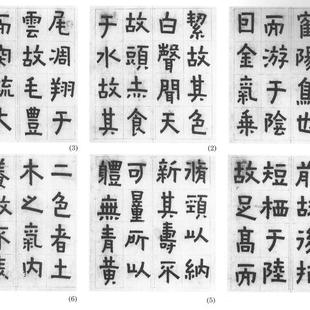 鶴陽鳥也
而游于陰
因金氣乘
(2)
絜故其色
白聲聞天
故頭赤食
于水故其
(3)
尾凋翔于
雲故毛豐
而肉疏大
前故後指
短栖于陸
故足高而
(5)
脩頸以納
新其壽不
可量所以
軆無青黃
(6)
二色者土
木之氣內
養故不表